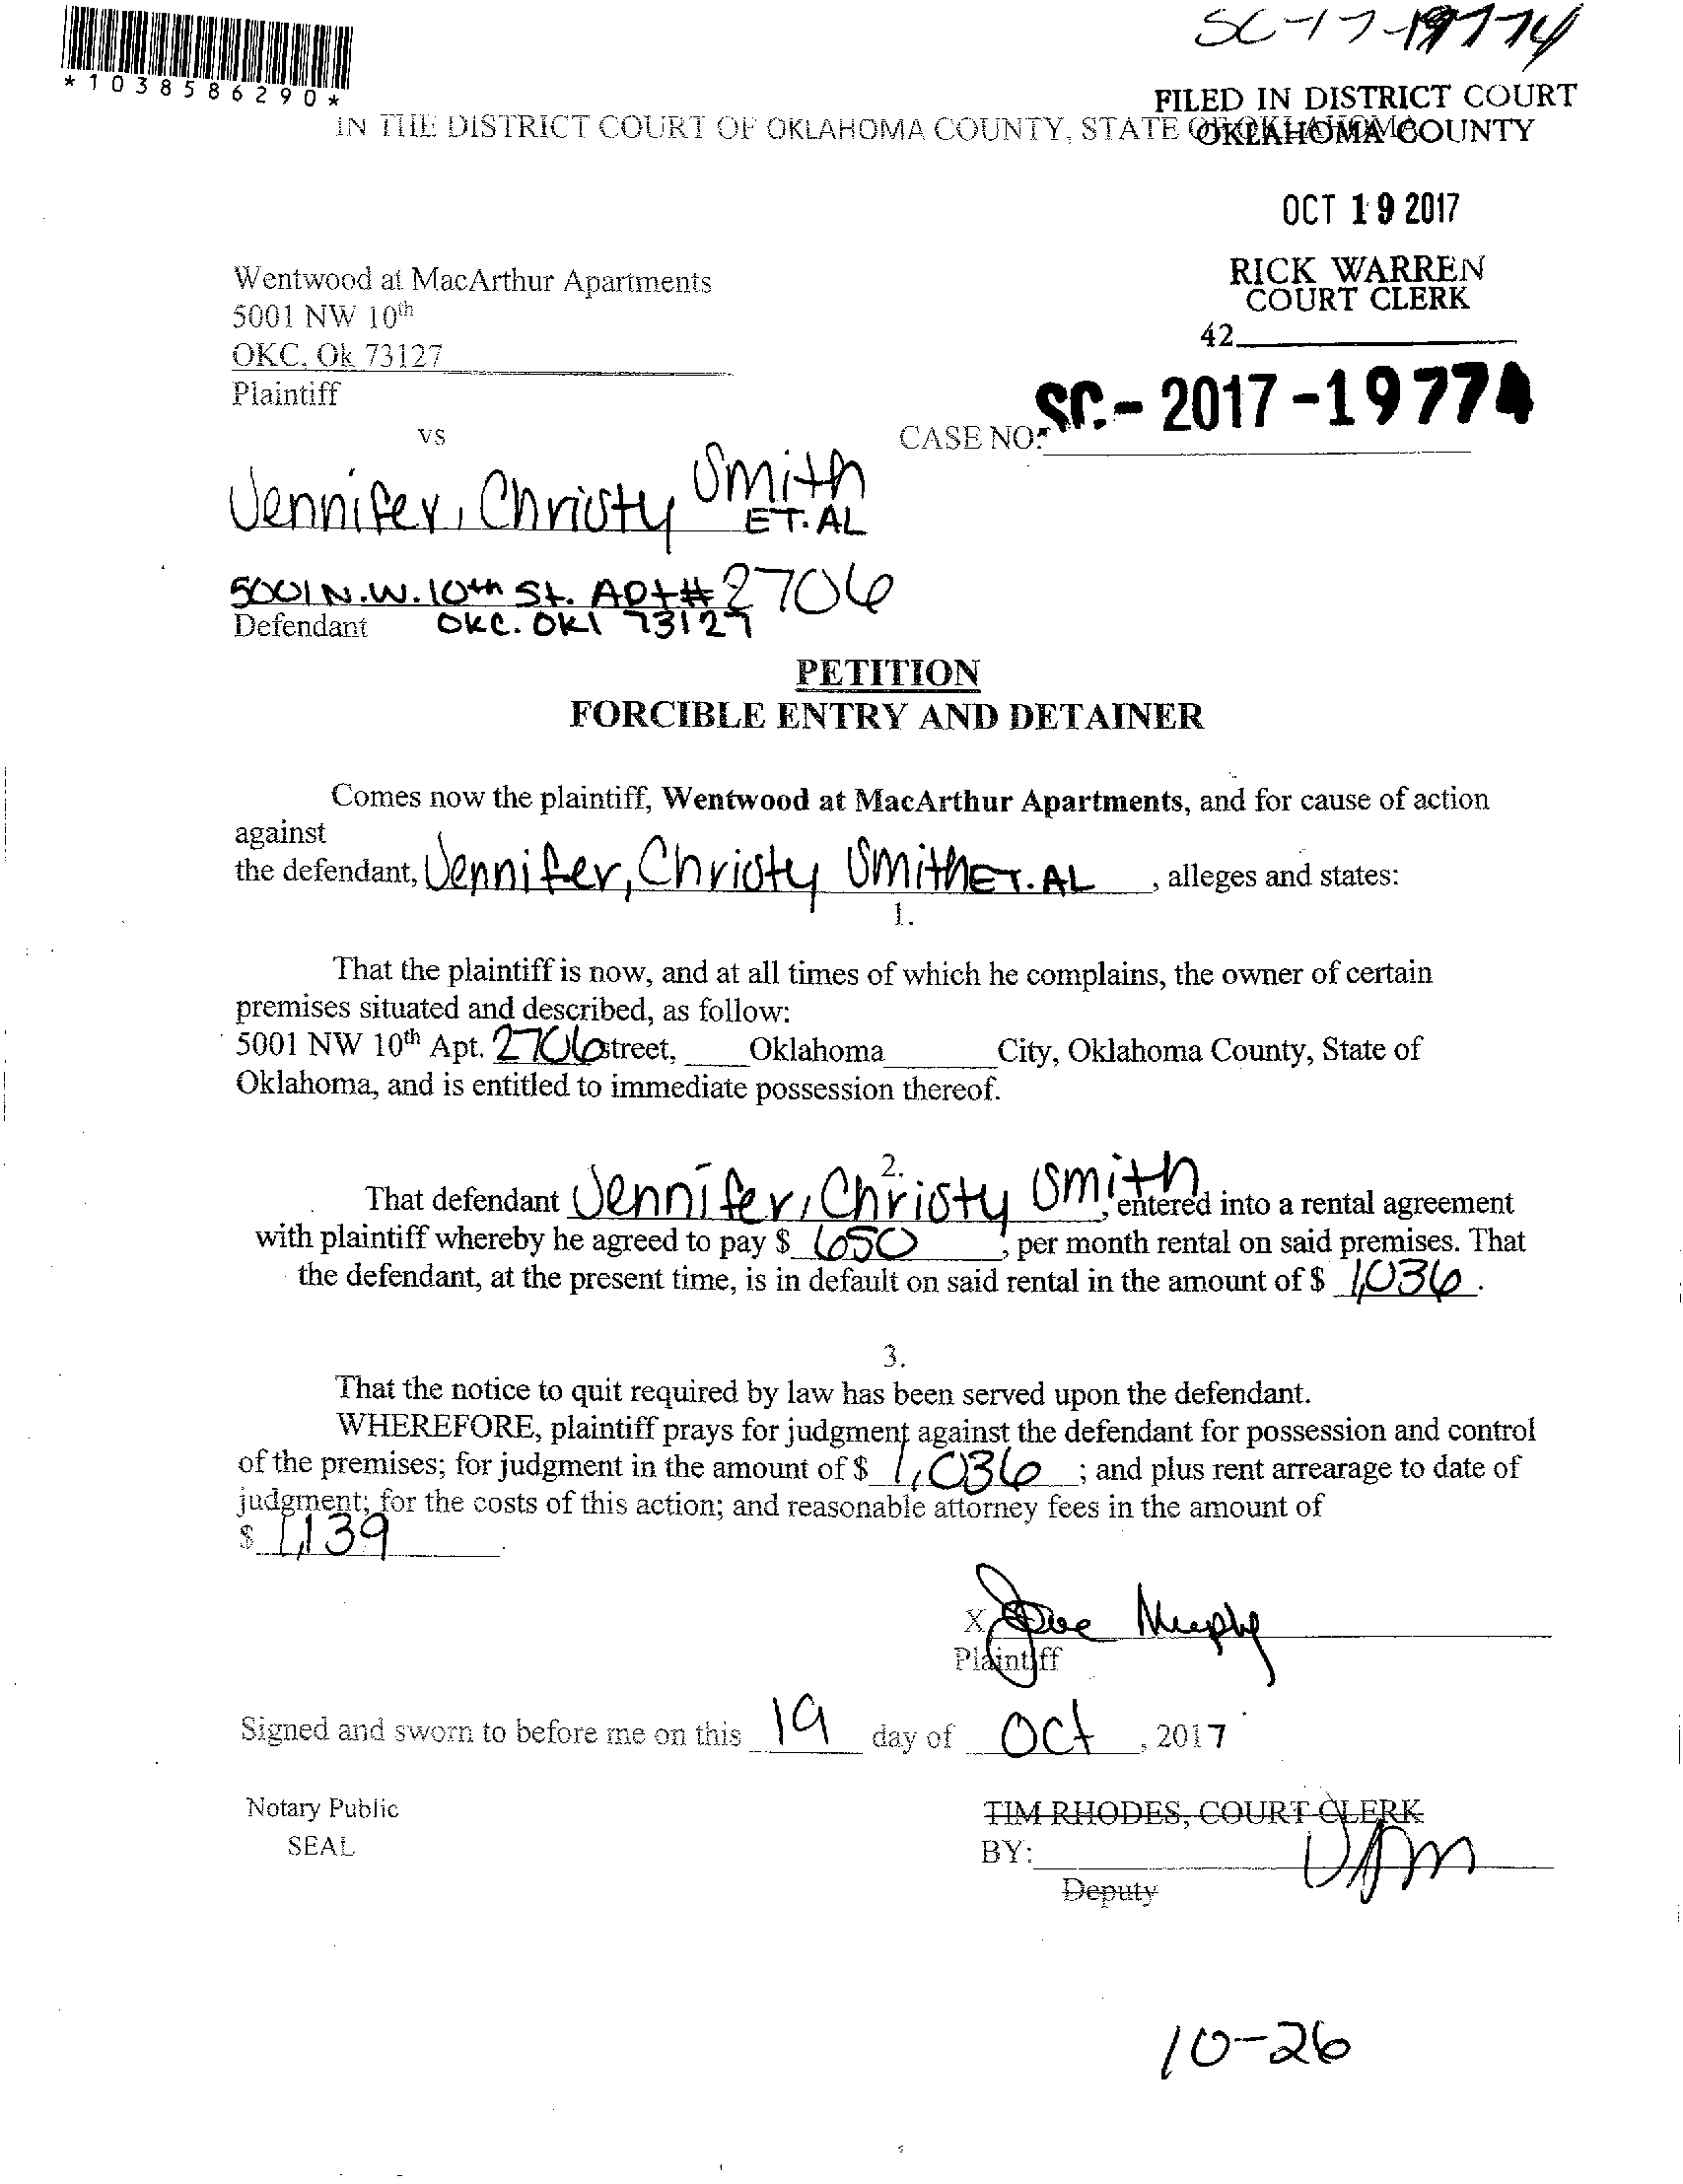 SC-17-19774
*1038586290*
FILED IN DISTRICT COURT
OKLAHOMA COUNTY
IN THE DISTRICT COURT OF OKLAHOMA COUNTY, STATE OF OKLAHOMA
OCT 19 2017
RICK WARREN
COURT CLERK
42
Wentwood at MacArthur Apartments
5001 NW 10th
OKC, Ok 73127
Plaintiff
vs
CASE NO: SC - 2017 - 19774
Jennifer, Christy Smith
ET. AL
5001 N.W. 10th St. Apt# 2706
Defendant OKC. Okl 73127
PETITION
FORCIBLE ENTRY AND DETAINER
Comes now the plaintiff, Wentwood at MacArthur Apartments, and for cause of action
against
the defendant, Jennifer, Christy Smith ET. AL , alleges and states:
1.
That the plaintiff is now, and at all times of which he complains, the owner of certain
premises situated and described, as follow:
5001 NW 10th Apt. 2706 street, Oklahoma City, Oklahoma County, State of
Oklahoma, and is entitled to immediate possession thereof.
2.
That defendant Jennifer, Christy Smith, entered into a rental agreement
with plaintiff whereby he agreed to pay $ 650 , per month rental on said premises. That
the defendant, at the present time, is in default on said rental in the amount of $ 1,036 .
3.
That the notice to quit required by law has been served upon the defendant.
WHEREFORE, plaintiff prays for judgment against the defendant for possession and control
of the premises; for judgment in the amount of $ 1,036 ; and plus rent arrearage to date of
judgment; for the costs of this action; and reasonable attorney fees in the amount of
$ 1,139
X Murphy
Plaintiff
Signed and sworn to before me on this 19 day of Oct , 2017
Notary Public
SEAL
TIM RHODES, COURT CLERK
BY:
Deputy
10-26